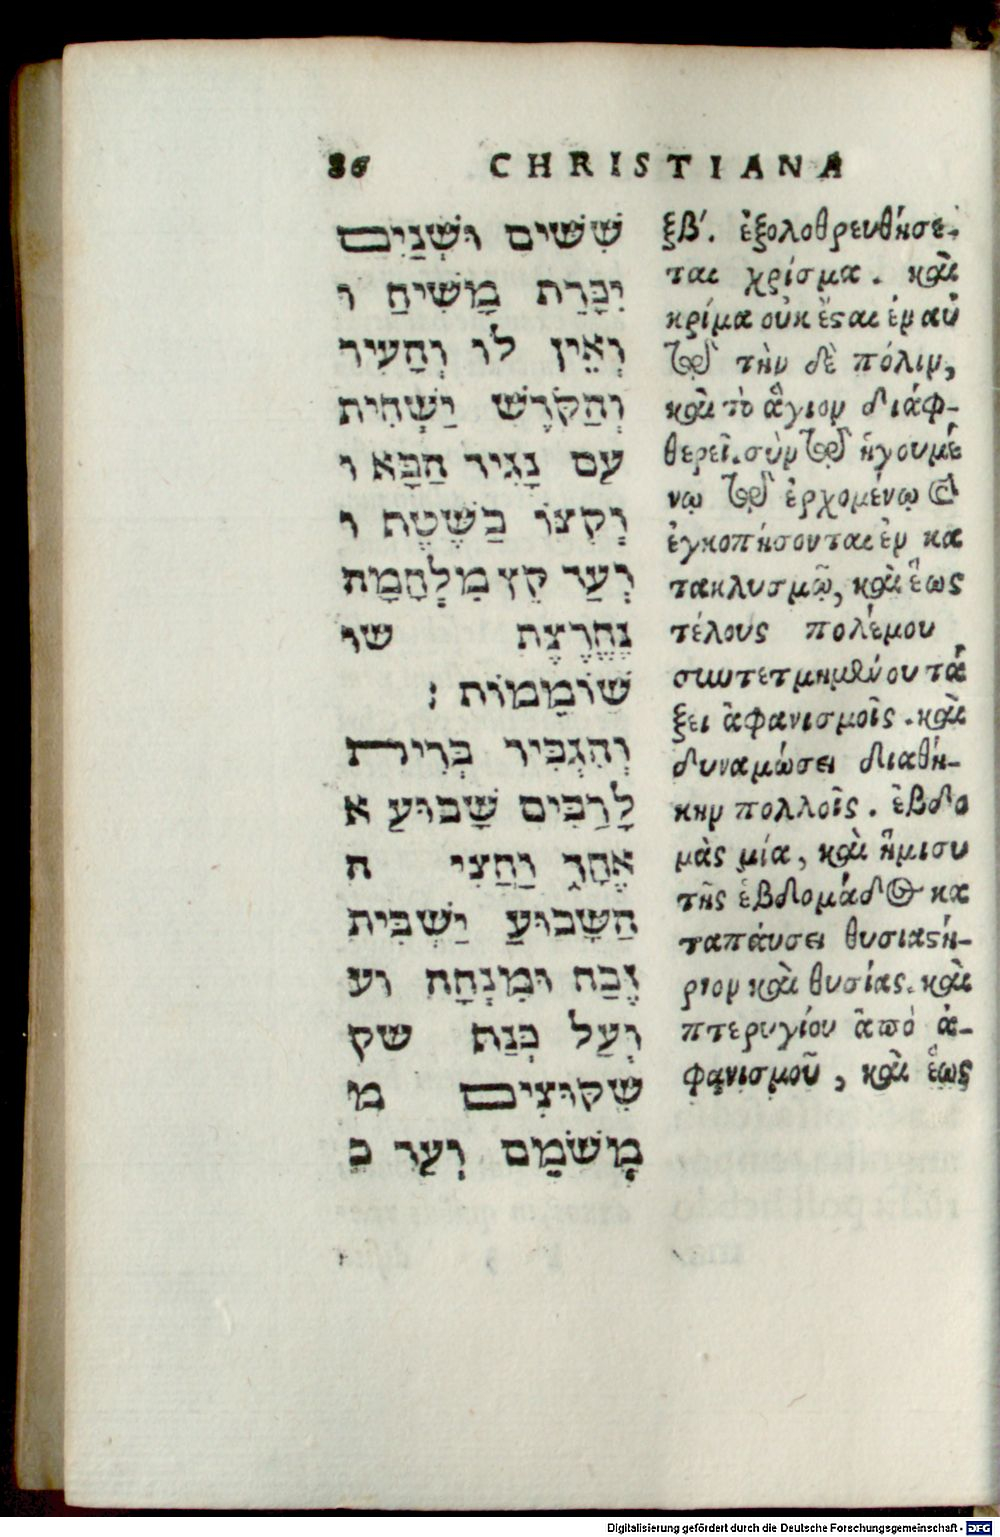 86 CHRISTIANA
שִׁשִּׁים וּשְׁנַיִם
יִכָּרֵת מָשִׁיחַ ו
וְאֵין לוֹ וְהָעִיר
וְהַקֹּדֶשׁ יַשְׁחִית
עַם נָגִיד הַבָּא ו
וְקִצּוֹ בַשֶּׁטֶף ו
וְעַד קֵץ מִלְחָמָה
נֶחֱרֶצֶת שו
שׁוֹמֵמוֹת :
וְהִגְבִּיר בְּרִית
לָרַבִּים שָׁבוּעַ א
אֶחָד וַחֲצִי ה
הַשָּׁבוּעַ יַשְׁבִּית
זֶבַח וּמִנְחָה וע
וְעַל כְּנַף שק
שִׁקּוּצִים מ
מְשֹׁמֵם וְעַד כ
ξβ′. ἐξολοθρευθήσε-
ται χρίσμα. καὶ
κρίμα οὐκ ἔσται ἐν αὐ
τῷ τὴν δὲ πόλιν,
καὶ τὸ ἅγιον διάφ-
θερεῖ. σὺν τῷ ἡγουμέ
νῳ τῷ ἐρχομένῳ καὶ
ἐγκοπήσονται ἐν κα
τακλυσμῷ, καὶ ἕως
τέλους πολέμου
συντετμημένου τά
ξει ἀφανισμοῖς. καὶ
δυναμώσει διαθή-
κην πολλοῖς. ἑβδο
μὰς μία, καὶ ἥμισυ
τῆς ἑβδομάδος κα
ταπαύσει θυσιαστή-
ριον καὶ θυσίας. καὶ
πτερυγίου ἀπὸ ἀ-
φανισμοῦ, καὶ ἕως
Digitalisierung gefördert durch die Deutsche Forschungsgemeinschaft - DFG